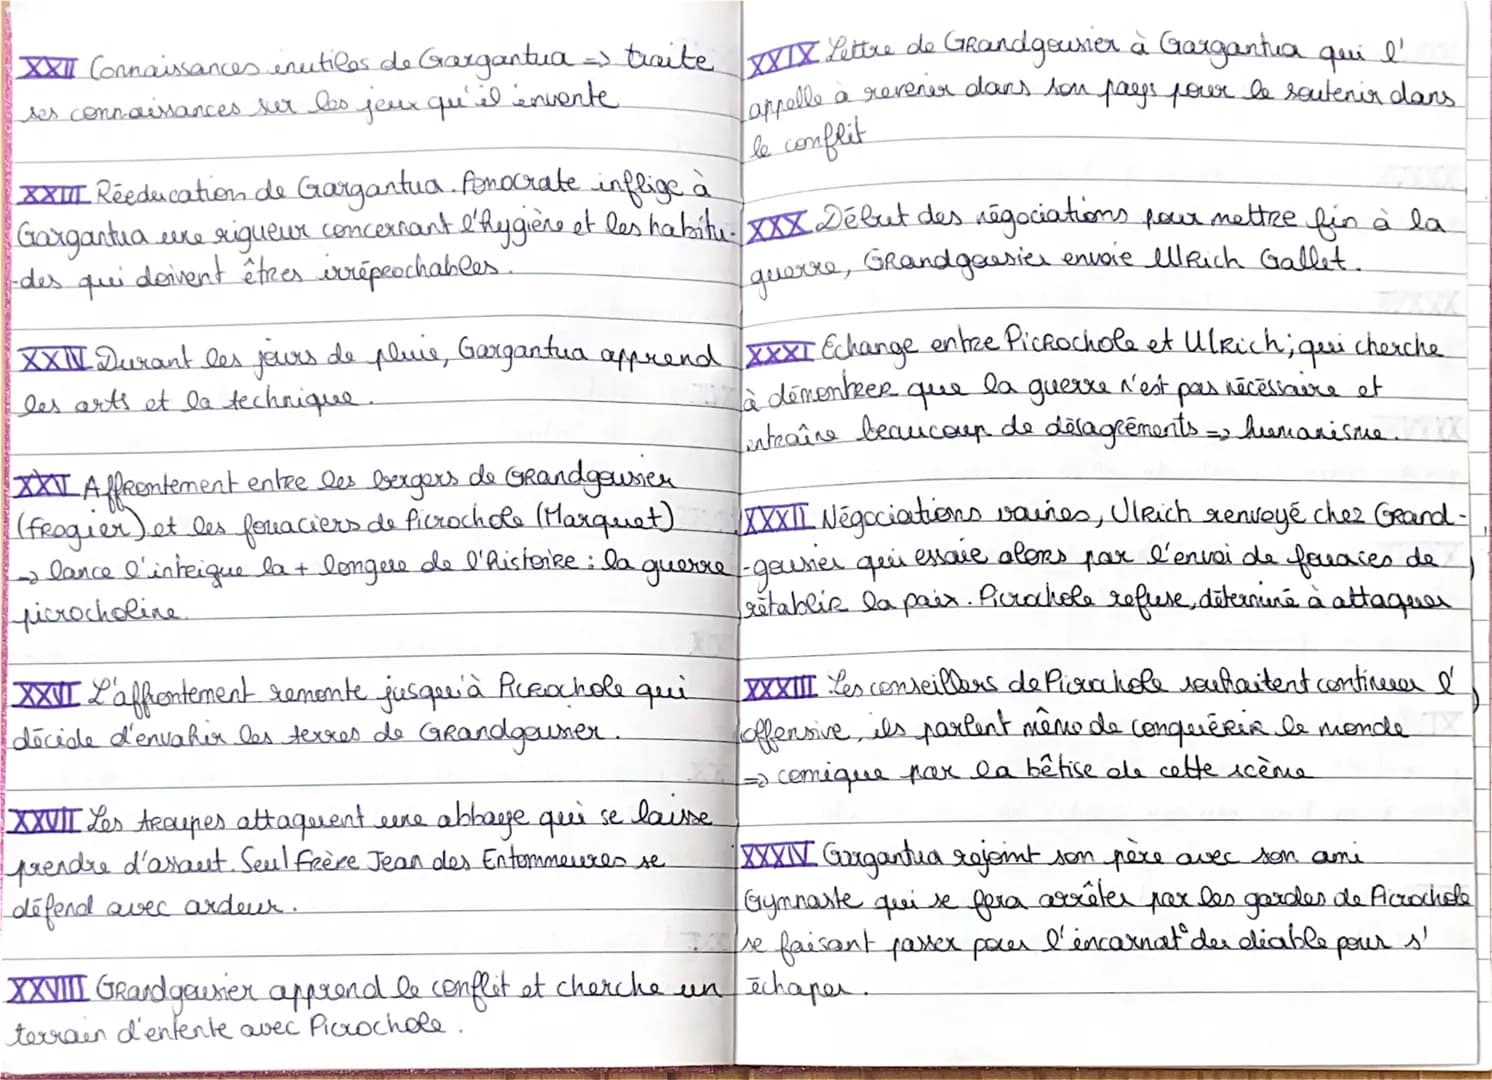 XXII Connaissances inutiles de Gargantua => traite
ses connaissances sur les jeux qu'il invente
XXIII Rééducation de Gargantua. Ponocrate inflige à
Gargantua une rigueur concernant l'hygiène et les habitu-
-des qui doivent êtres irréprochables.
XXIV Durant les jours de pluie, Gargantua apprend
les arts et la technique.
XXV Affrontement entre les bergers de Grandgousier
(Frogier) et les fouaciers de Picrochole (Marquet)
-> lance l'intrigue la + longue de l'histoire : la guerre
picrocholine.
XXVI L'affrontement remonte jusqu'à Picrochole qui
décide d'envahir les terres de Grandgousier.
XXVII Les troupes attaquent une abbaye qui se laisse
prendre d'assaut. Seul Frère Jean des Entommeures se
défend avec ardeur.
XXVIII Grandgousier apprend le conflit et cherche un
terrain d'entente avec Picrochole.
XXIX Lettre de Grandgousier à Gargantua qui l'
appelle à revenir dans son pays pour le soutenir dans
le conflit
XXX Début des négociations pour mettre fin à la
guerre, Grandgousier envoie Ulrich Gallet.
XXXI Echange entre Picrochole et Ulrich; qui cherche
à démontrer que la guerre n'est pas nécessaire et
entraîne beaucoup de désagréments => humanisme.
XXXII Négociations vaines, Ulrich renvoyé chez Grand-
-gousier qui essaie alors par l'envoi de fouaces de
rétablir la paix. Picrochole refuse, déterminé à attaquer
XXXIII Les conseillers de Picrochole souhaitent continuer l'
offensive, ils parlent même de conquérir le monde
=> comique par la bêtise de cette scène
XXXIV Gargantua rejoint son père avec son ami
Gymnaste qui se fera arrêter par les gardes de Picrochole
se faisant passer pour l'incarnat° du diable pour s'
échaper.